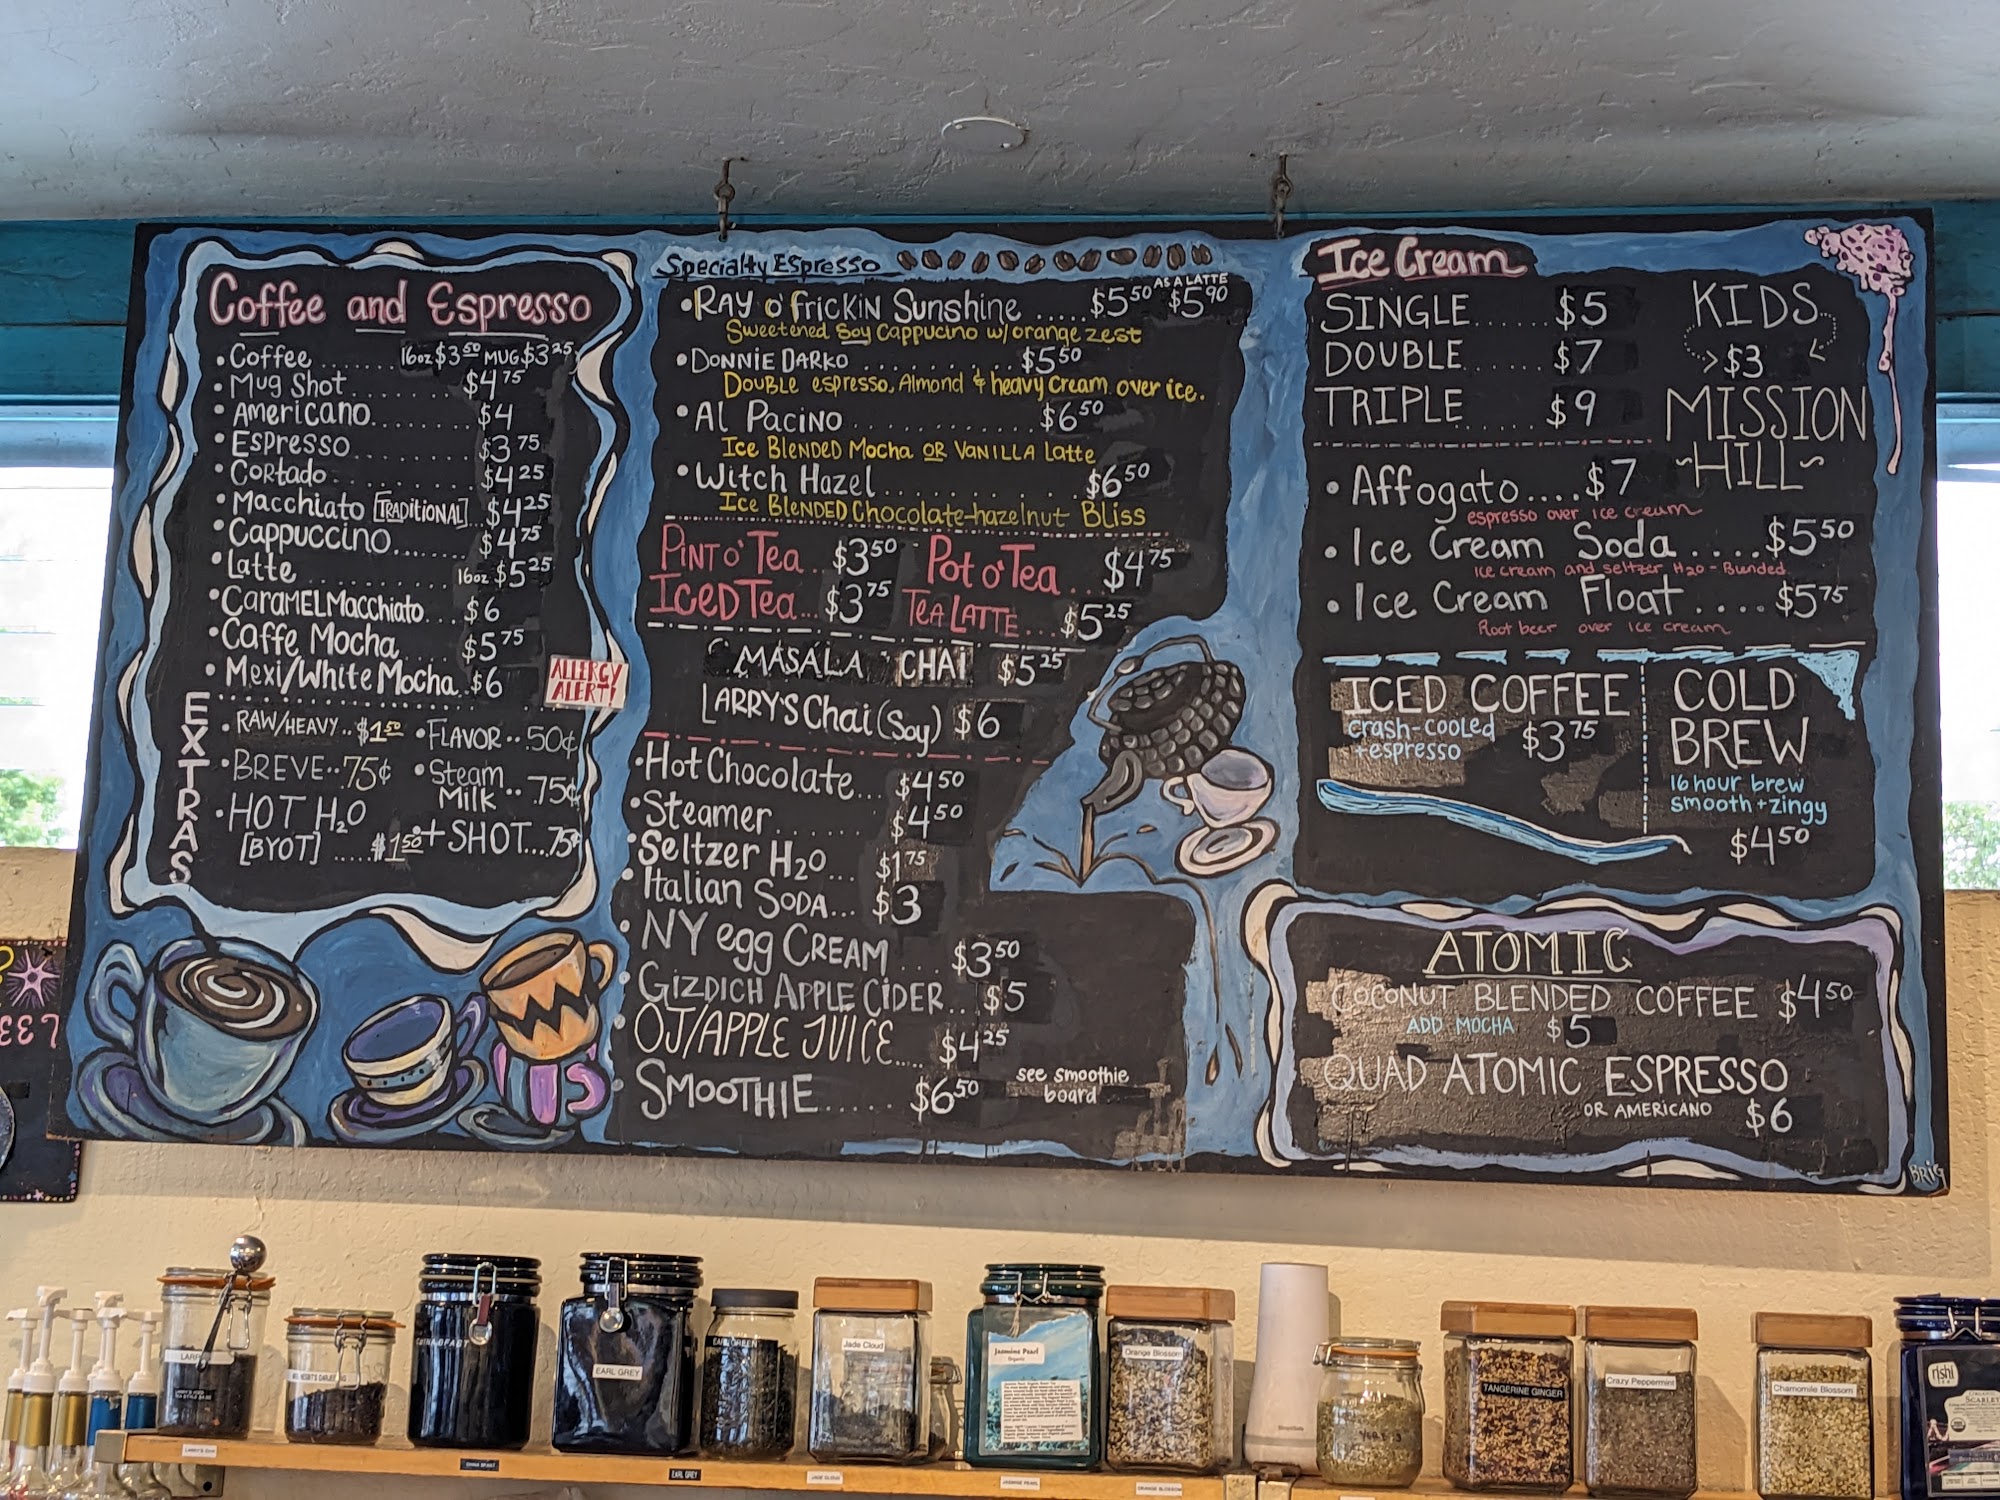 Coffee and Espresso
• Coffee ........ 16oz $3.50 MUG $3.25
• Mug Shot ........ $4.75
• Americano ........ $4
• Espresso ........ $3.75
• Cortado ........ $4.25
• Macchiato [TRADITIONAL] .. $4.25
• Cappuccino ....... $4.75
• Latte ........ 16oz $5.25
• Caramel Macchiato... $6
• Caffe Mocha ...... $5.75
• Mexi/White Mocha.. $6
ALLERGY
ALERT!
EXTRAS
• RAW/HEAVY .. $1.50
• BREVE .. 75¢
• HOT H2O
[BYOT] ..... $1.50
• FLAVOR .. 50¢
• Steam
Milk .. 75¢
+ SHOT.... 75¢
Specialty Espresso
• RAY o' Frickin Sunshine ..... $5.50 AS A LATTE $5.90
Sweetened Soy Cappucino w/orange zest
• Donnie Darko ........ $5.50
Double espresso, Almond & heavy cream over ice.
• Al Pacino ........ $6.50
Ice Blended Mocha OR Vanilla Latte
• Witch Hazel ........ $6.50
Ice Blended Chocolate-hazelnut Bliss
Pint o' Tea ... $3.50
Pot o' Tea ... $4.75
Iced Tea ... $3.75
Tea Latte ... $5.25
MASALA CHAI $5.25
LARRY'S Chai (Soy) $6
• Hot Chocolate ... $4.50
• Steamer ....... $4.50
• Seltzer H2O ... $1.75
• Italian Soda... $3
• NY egg CREAM .... $3.50
• Gizdich Apple Cider... $5
• OJ/APPLE JUICE .... $4.25
• SMOOTHIE ..... $6.50
see smoothie
board
Ice Cream
SINGLE ...... $5
DOUBLE ...... $7
TRIPLE ...... $9
KIDS
$3
MISSION
~HILL~
• Affogato .... $7
espresso over ice cream
• Ice Cream Soda .... $5.50
Ice cream and seltzer H2O - Blended
• Ice Cream Float .... $5.75
Root beer over ice cream
ICED COFFEE
crash-cooled
+espresso
$3.75
COLD
BREW
16 hour brew
smooth + zingy
$4.50
ATOMIC
COCONUT BLENDED COFFEE $4.50
ADD MOCHA $5
QUAD ATOMIC ESPRESSO
OR AMERICANO $6
BRIG
EARL GREY
Jade Cloud
Jasmine Pearl
Organic
Orange Blossom
TANGERINE GINGER
Crazy Peppermint
Chamomile Blossom
rishi
LARRY'S CHAI
EARL GREY
JADE CLOUD
JASMINE PEARL
ORANGE BLOSSOM